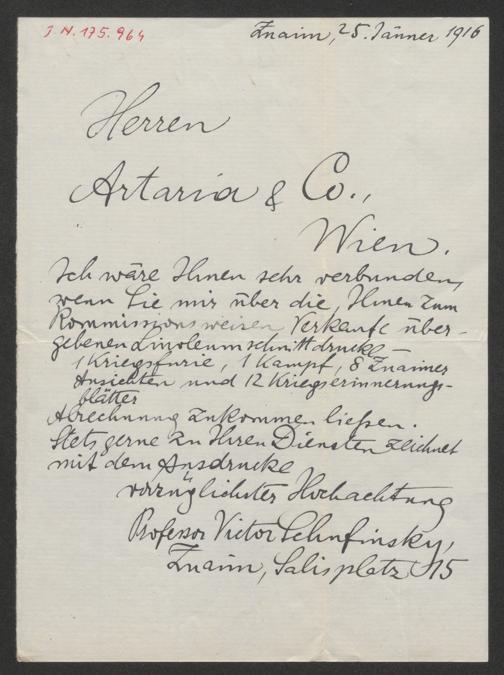 J.N. 175.964
Znaim, 25. Jänner 1916
Herren
Artaria & Co.,
Wien.
Ich wäre Ihnen sehr verbunden,
wenn Sie mir über die, Ihnen zum
Kommissionsweisen Verkaufe über-
gebenen Linoleumschnittdrucke –
1 Kriegsfurie, 1 Kampf, 8 Znaimer
Ansichten und 12 Kriegserinnerungs-
blätter
Abrechnung zukommen ließen.
Stets gerne zu Ihren Diensten zeichnet
mit dem Ausdrucke
vorzüglichster Hochachtung
Professor Victor Schufinsky,
Znaim, Salisplatz 15